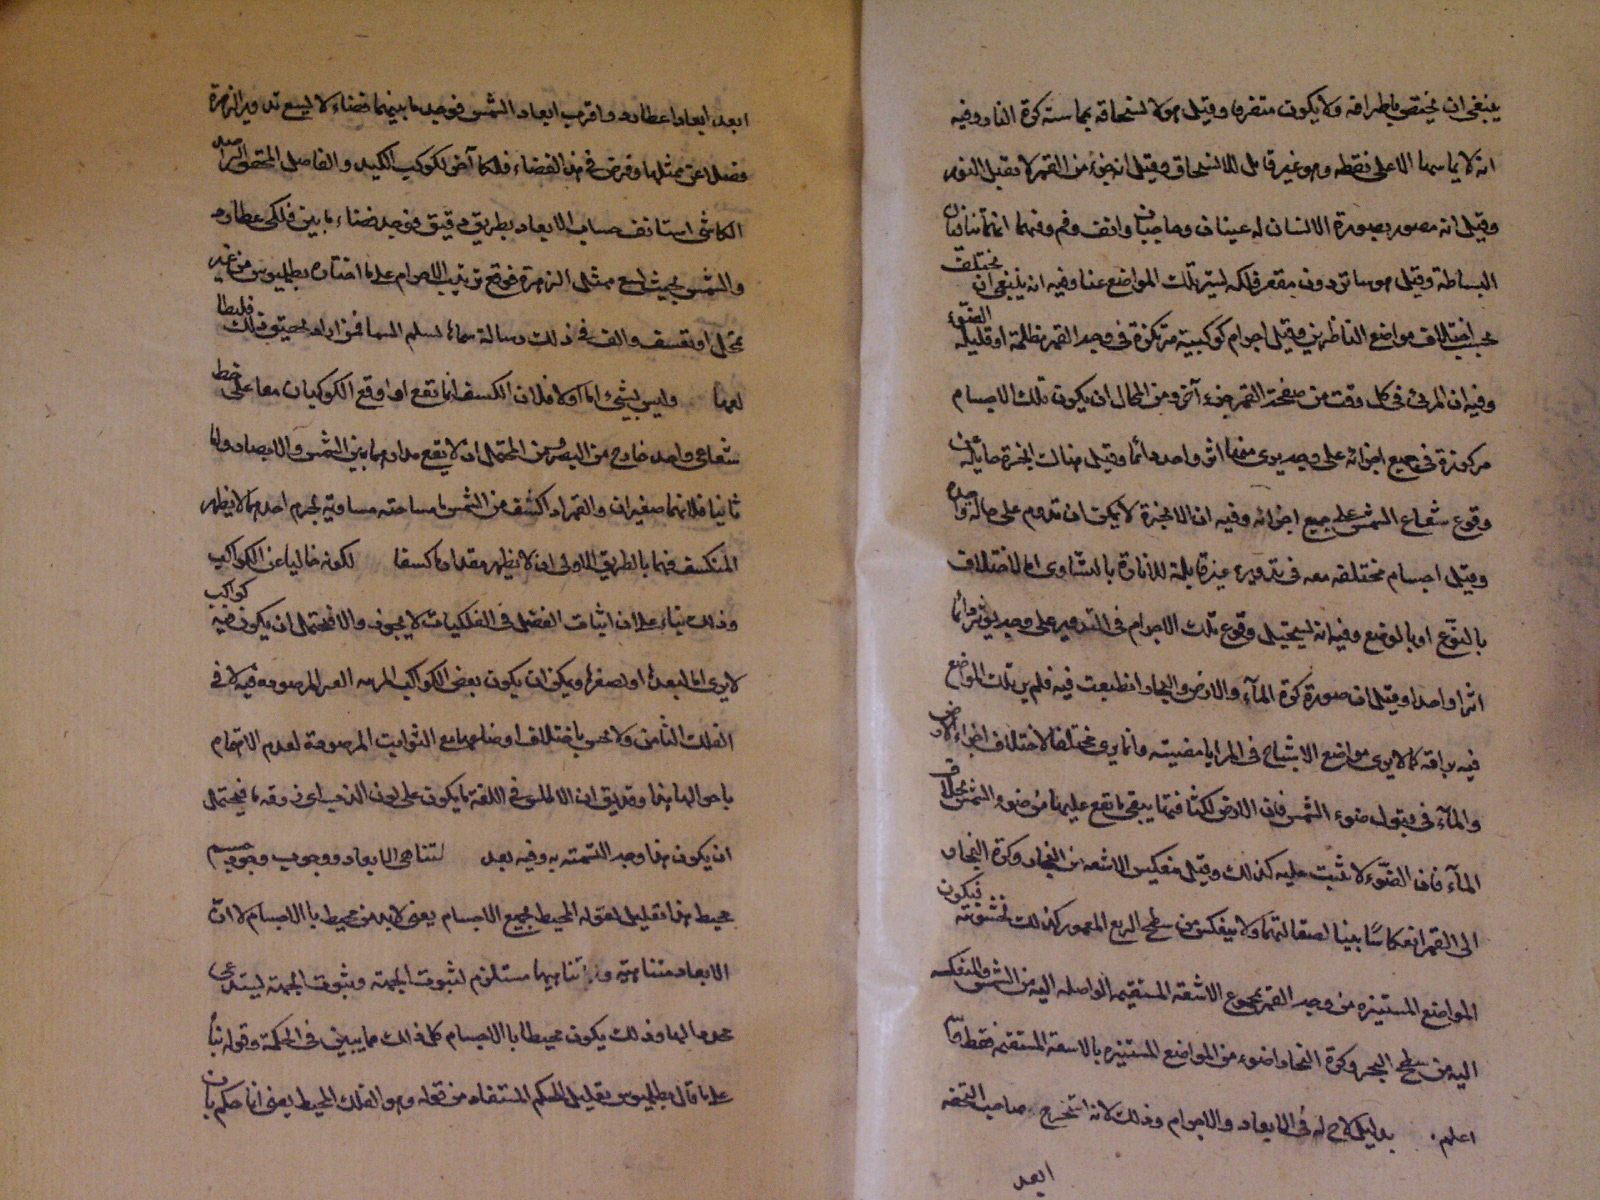 ينبغي ان يختص باطرافه ولا يكون متفرقا وقيل هو لانسحاقه بمماسته كرة النار وفيه
انه لا يماسها الا على نقطه وهو غير قابل للانسحاق وقيل انه جزء من القمر لا يقبل النور
وقيل انه مصور بصورة الانسان له عينان وحاجبان وانف وفم
البساطة وقيل هو ساتر دون مقعر فلكه يستر تلك المواضع عنا وفيه انه ينبغي ان يختلف
بحسب اختلاف مواضع الناظرين وقيل اجرام كوكبية مرتكزة في وجه القمر مظلمة او قليلة الضوء
وفيه ان المرئي في كل وقت من صفحة القمر جزء آخر ومن المحال ان يكون تلك الاجسام
مركوزة في جميع اجزائه على وجه يرى منها اثر واحد دائما وقيل هناك ابخرة حايلة عن
وقوع شعاع الشمس على جميع اجزائه وفيه ان الابخرة لا يمكن ان تدوم على حالة واحدة
وقيل اجسام مختلفه معه في تدويره غير قابلة للانارة بالتساوي اما لاختلاف
بالنوع او بالوضع وفيه انه يستحيل وقوع تلك الاجرام في التدوير على وجه يؤثر دائما
اثرا واحدا وقيل ان صورة كرة المآء والارض والبحار انطبعت فيه فلم ير تلك المواضع
فيه براقة كما لا يرى مواضع الاشباح في المرايا مضيئه وانما يرى مختلفا لاختلاف اجزاء الارض
والمآء في قبول ضوء الشمس فان الارض لكثافتها يبقى ما تقع عليها من ضوء الشمس بخلاف
المآء فان الضوء لا يثبت عليه كذلك وقيل ينعكس الاشعه من البخار وكرة البخار
الى القمر انعكاسًا بينا لصقالتهما ولا ينعكس من سطح الربع المعمور كذلك لخشونته فيكون
المواضع المستنيره من وجه القمر بمجموع الاشعة المستقيمه الواصله اليه من الشمس والمنعكسه
اليه من سطح البحر وكرة البخار اضوء من المواضع المستنيره بالاشعة المستقيمه فقط والله
اعلم. بدليل لاح له في الابعاد والاجرام وذلك لانه استخرج صاحب التحفه
ابعد
ابعد ابعاد عطارد واقرب ابعاد الشمس فوجد ما بينهما فضاء لا يسع تدوير الزهرة
فضلا عن ممثلها وفرض في هذا الفضاء فلكا آخر لكوكب الكيد والفاضل المحقق الراصد
الكاشي استانف حساب الابعاد بطريق دقيق فوجد فضاء ما بين فلكي عطارد
والشمس بحيث يسع ممثل الزهرة فوقع ترتيب الاجرام على ما اختاره بطلميوس من غير
تمحل او تعسف والف في ذلك رسالة سماها بسلم السما فمن اراد تحقيق ذلك فليطا
لعها وليس بشيء اما اولا فلان الكسف انما تقع اذا وقع الكوكبان معا على خط
شعاعي واحد خارج من البصر ومن المحتمل ان لا يقع مدارهما بين الشمس والابصار واما
ثانيا فلانهما صغيران والقمر اذا كشف من الشمس ما مساحته مساوية لجرم احدهما لا يظهر
المنكسف فهما بالطريق الاولى ان لا يظهر مقدار ما كسفا لكونه خاليا عن الكواكب
وذلك بناء على ان اثبات الفضل في الفلكيات لا يجوز والا فيحتمل ان يكون فيه كواكب
لا يرى اما لبعدها او لصغرها ويمكن ان يكون بعض الكواكب الغير المرصوده فيه لا في
الفلك الثامن ولا نحس باختلاف اوضاعها مع الثوابت المرصودة لعدم الاهتمام
باحوالها هذا وقد يق ان الاطلس في اللغة ما يكون على لون الذئب فيحتمل
ان يكون هذا وجه التسمته به وفيه بعد لتناهي الابعاد ووجوب وجود جسم
محيط هذا تعليل لقوله المحيط بجميع الاجسام يعني لابد من محيط بالاجسام لان
الابعاد متناهيه وتناهيها مستلزم لثبوت الجهة وثبوت الجهة يستدعي
محددا لها وذلك يكون محيطا بالاجسام كل ذلك مما يبين في الحكمة وقوله بناء
على ما قال بطلميوس تعليل للحكم المستفاد من قوله وهو الفلك المحيط يعني انما حكم بان